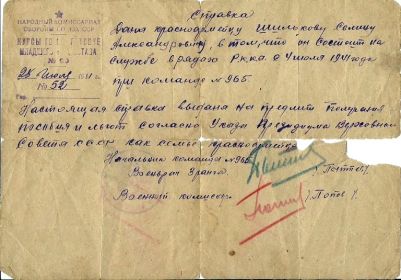 Справка
НАРОДНЫЙ КОМИССАРИАТ
ОБОРОНЫ СОЮЗА ССР
КУРСЫ
МЛАДШ
Дана красноармейцу Шилькову Селину
Александровичу, в том, что он состоит на
службе в рядах Р.К.К.А. с 4 июля 1941 года
при команде № 965.
№ 52
Настоящая справка выдана на предмет получения
пособия и льгот согласно Указа Президиума Верховного
Совета СССР как семье красноармейца
Начальник команды № 965
Военврач 3 ранга
Военный комиссар